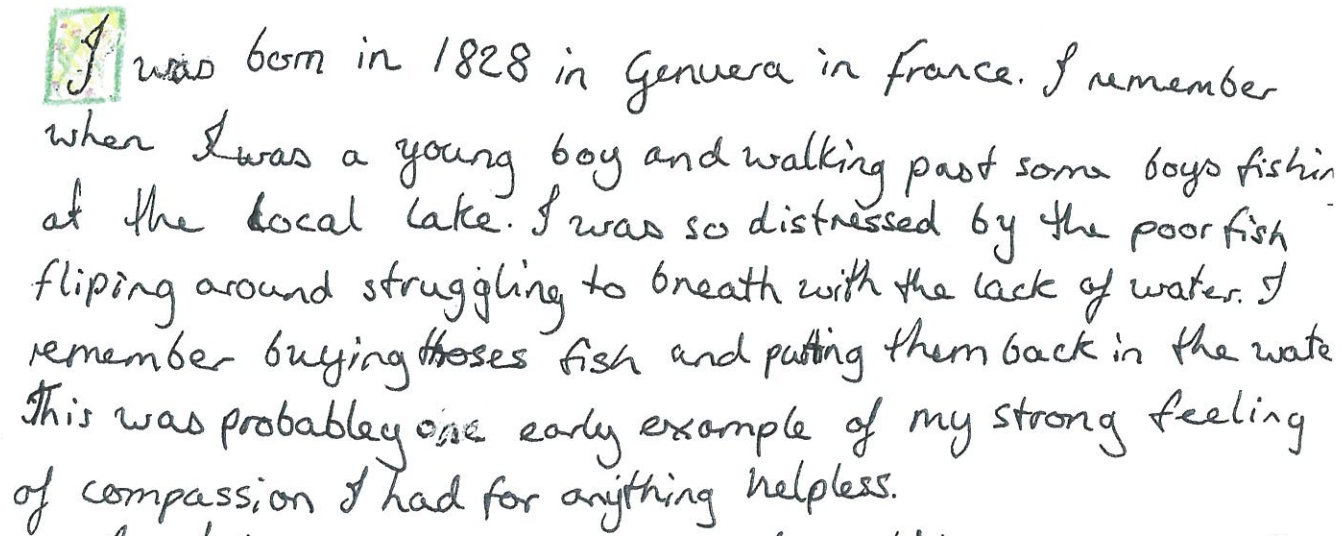 I was born in 1828 in Genuera in france. I remember
when I was a young boy and walking past some boys fishin
at the local lake. I was so distressed by the poor fish
fliping around struggling to breath with the lack of water. I
remember buying theses fish and putting them back in the wate
This was probabley one early example of my strong feeling
of compassion I had for anything helpless.